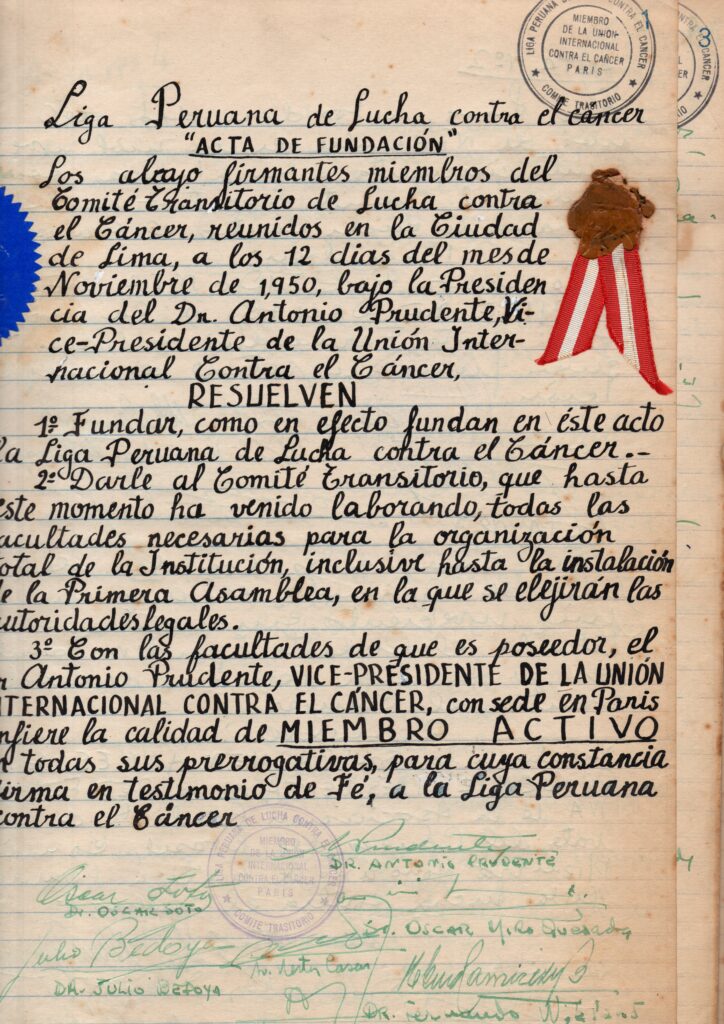 LIGA PERUANA DE LUCHA CONTRA EL CÁNCER
MIEMBRO
DE LA UNION
INTERNACIONAL
CONTRA EL CAÑCER
PARIS
★ COMITE TRASITORIO ★
8
Liga Peruana de Lucha contra el cancer
"ACTA DE FUNDACIÓN"
Los abajo firmantes miembros del
Comité Transitorio de Lucha contra
el Cáncer, reunidos en la Ciudad
de Lima, a los 12 dias del mes de
Noviembre de 1,950, bajo la Presiden
cia del Dr. Antonio Prudente, Vi-
ce-Presidente de la Unión Inter-
nacional Contra el Cáncer,
RESUELVEN
1º Fundar, como en efecto fundan en éste acto
la Liga Peruana de Lucha contra el Cáncer.-
2º Darle al Comité Transitorio, que hasta
este momento ha venido laborando, todas las
acultades necesarias para la organización
otal de la Institución, inclusive hasta la instalación
de la Primera Asamblea, en la que se elejirán las
autoridades legales.
3º Con las facultades de que es poseedor, el
r Antonio Prudente, VICE-PRESIDENTE DE LA UNIÓN
NTERNACIONAL CONTRA EL CÁNCER, con sede en Paris
nfiere la calidad de MIEMBRO ACTIVO
n todas sus prerrogativas, para cuya constancia
irma en testimonio de Fé, a la Liga Peruana
contra el Cáncer
LIGA PERUANA DE LUCHA CONTRA EL CANCER
MIEMBRO
DE LA UNION
INTERNACIONAL
CONTRA EL CANCER
PARIS
★ COMITE TRASITORIO ★
DR. ANTONIO PRUDENTE
Oscar Soto
Dr. OSCAR SOTO
Dr. OSCAR MIRO QUESADA
Julio Bedoya
DR. JULIO BEDOYA
DR. Fernando